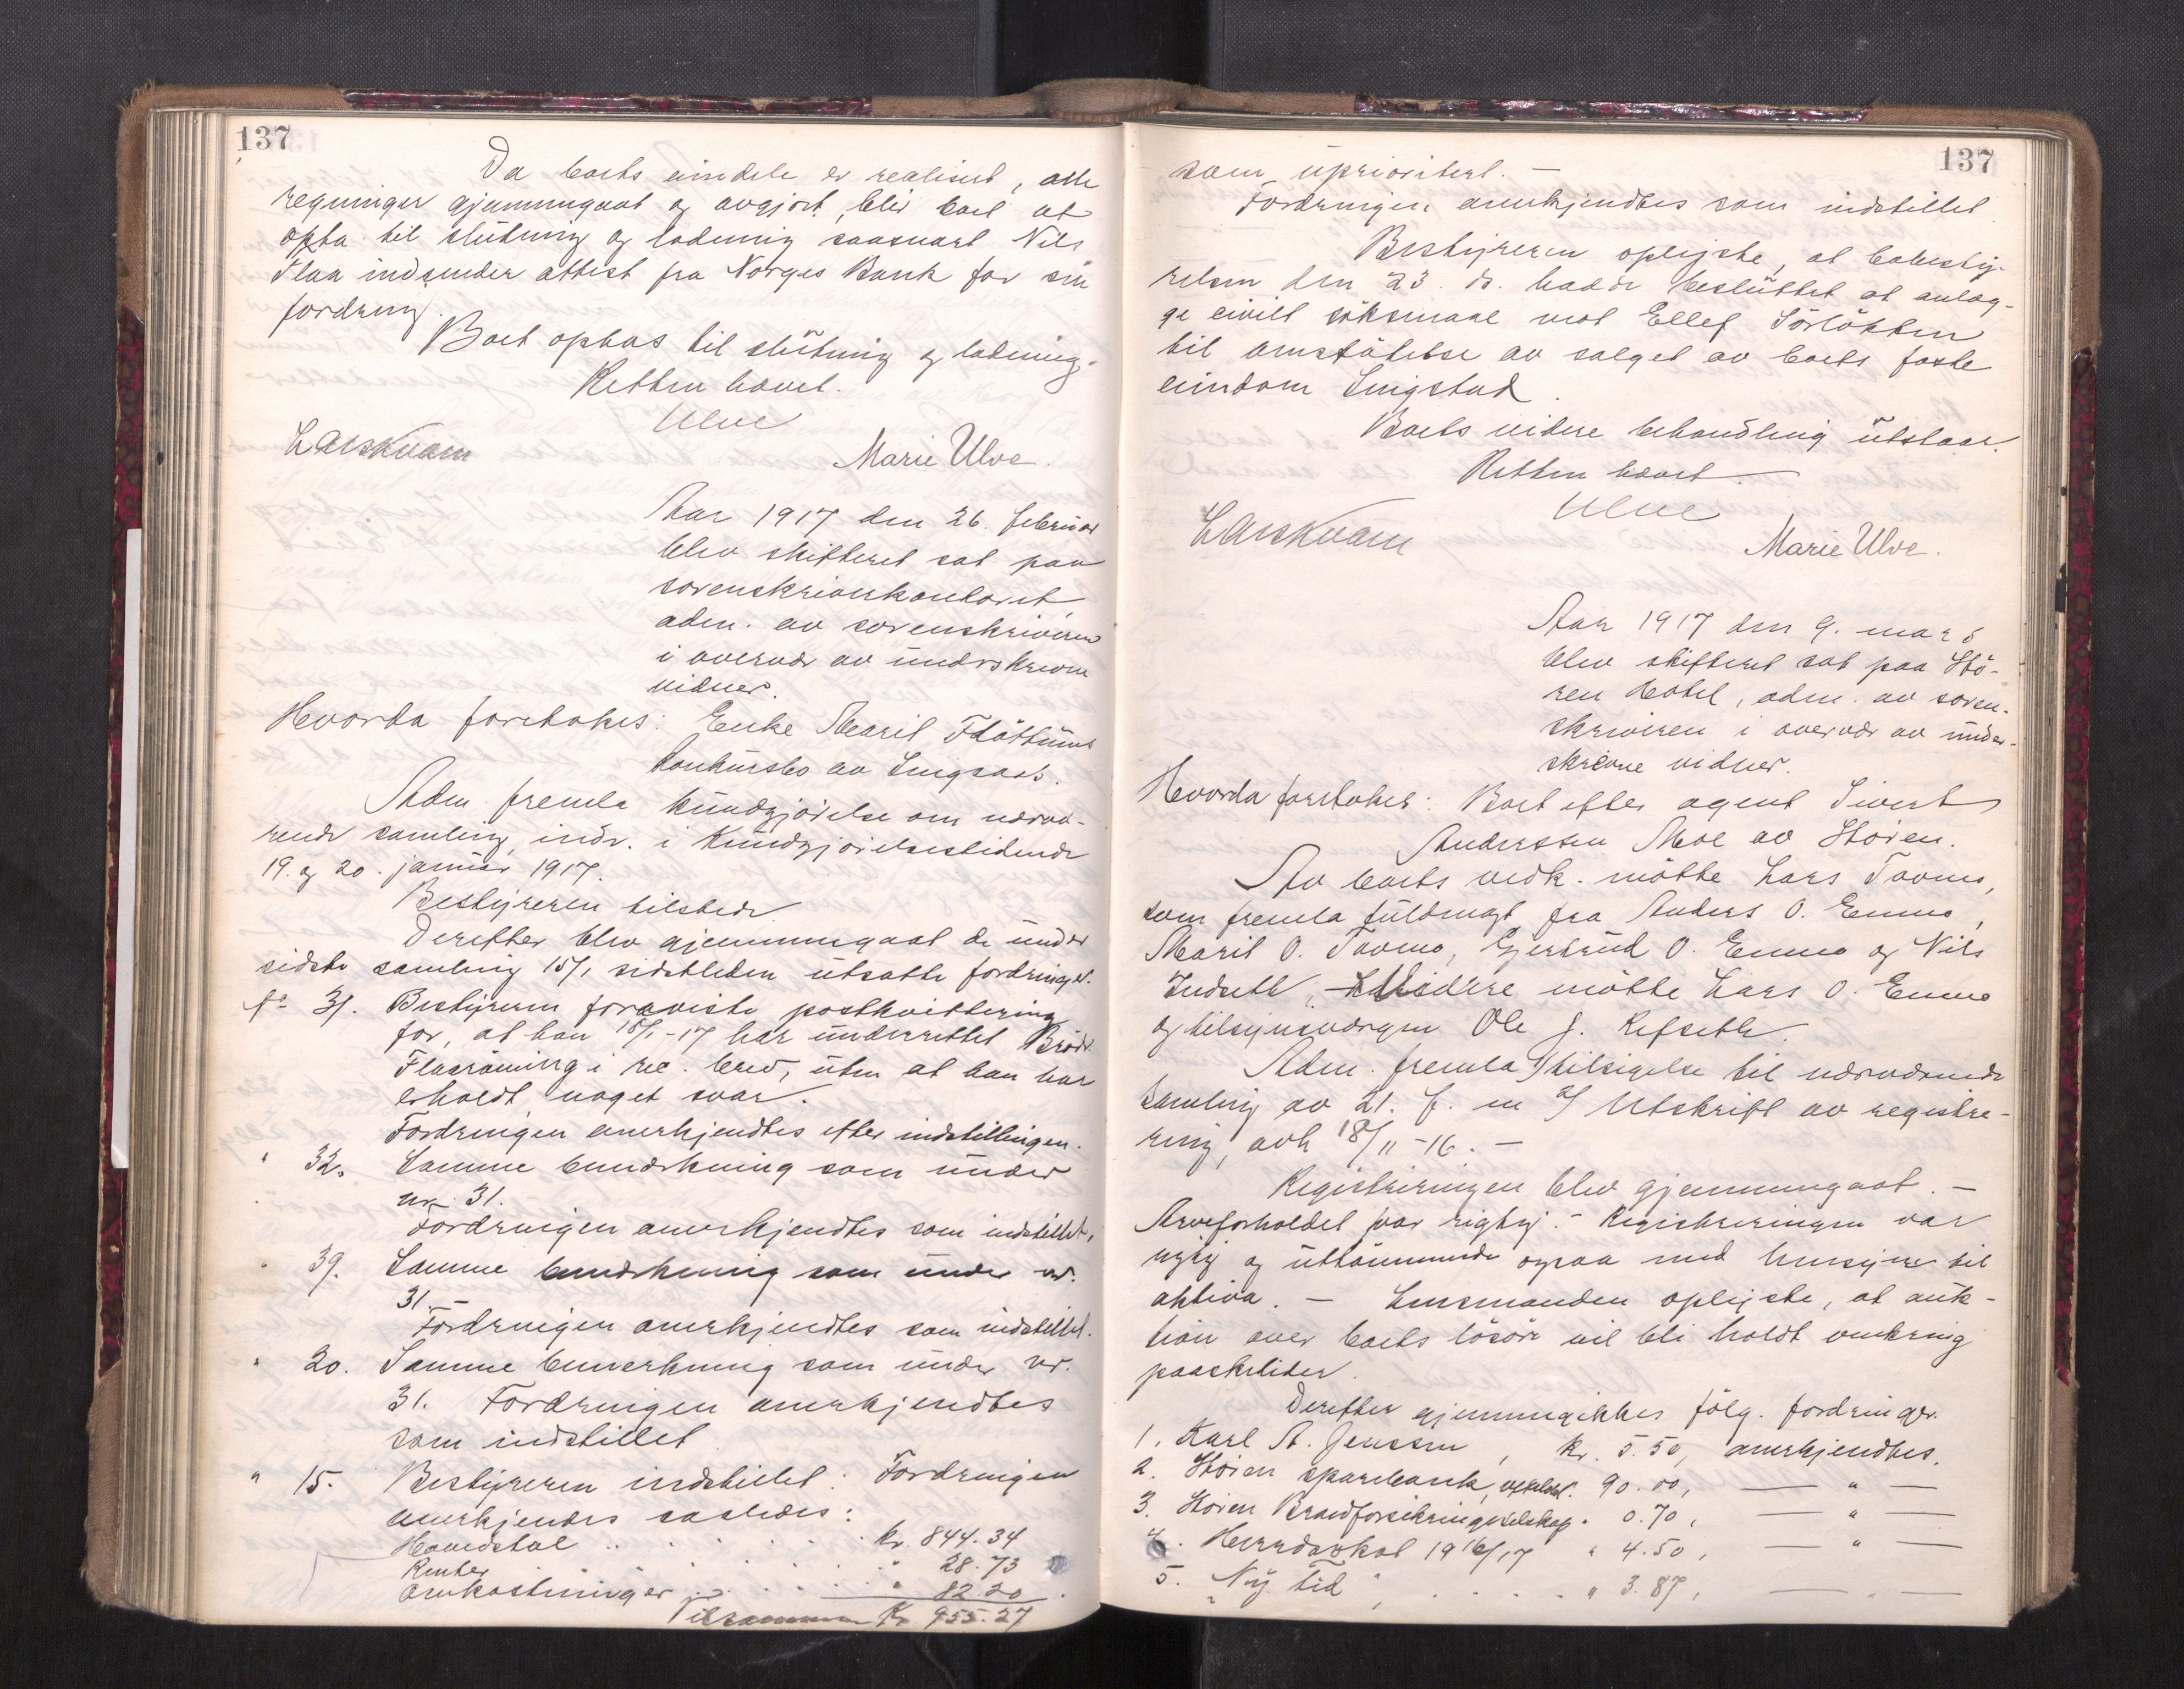 137
Da boets eiendele er realisert, alle
regninger gjennemgaat og avgjort, blir boet at
opta til slutning og lodning saasnart Nils
Flaa indsender attest fra Norges Bank for sin
fordring.
Boet optas til slutning og lodning.
Retten hævet.
Ulve
Lars Kvam
Marie Ulve.
Aar 1917 den 26. februar
blev skifteret sat paa
sorenskriverkontoret,
adm. av sorenskriveren
i overvær av underskrevne
vidner.
Hvorda foretokes: Enke Marit Flöttums
konkursbo av Singsaas.
Adm. fremla kundgjörelse om nærvæ-
rende samling, indr. i Kundgjörelsestidende
19. og 20. januar 1917.
Bestyreren tilstede.
Derefter blev gjennemgaat de under
sidste samling 15/1 sidstleden utsatte fordringer.
No 31. Bestyreren foreviste postkvittering
for, at han 18/1-17 har underrettet Brödr.
Flaaröning i rec. brev, uten at han har
erholdt noget svar.
Fordringen anerkjendtes efter indstillingen.
" 32. Samme bemerkning som under
nr. 31.
Fordringen anerkjendtes som indstillet.
" 39. Samme bemerkning som under nr.
31.
Fordringen anerkjendtes som indstillet.
" 20. Samme bemerkning som under nr.
31. Fordringen anerkjendtes
som indstillet.
" 15. Bestyreren indstillet: Fordringen
anerkjendes saaledes:
Hovedstol . . . kr. 844.34
Renter " 28.73
Omkostninger . . . " 82.20
Tilsammen Kr 955.27
137
som uprioritert. —
Fordringen anerkjendtes som indstillet.
Bestyreren oplyste, at bobesty-
relsen den 23. ds. hadde besluttet at anlæg-
ge civilt söksmaal mot Ellef Sörlökken
til omstötelse av salget av boets faste
eiendom Singstad.
Boets videre behandling utstaar.
Retten hævet.
Ulve
Lars Kvam
Marie Ulve.
Aar 1917 den 9. mars
blev skifteret sat paa Stö-
ren hotel, adm. av soren-
skriveren i overvær av under-
skrevne vidner.
Hvorda foretokes: Boet efter agent Sivert
Anderssen Moe av Stören.
Av boets vedk. mötte Lars Tovmo,
som fremla fuldmagt fra Anders O. Enmo,
Marit O. Tovmo, Gjertrud O. Enmo og Nils
Indseth, Videre mötte Lars O. Enmo
og tilsynsværgen Ole J. Refseth.
Adm. fremla 1) tilsigelse til nærværende
samling av 21. f. m 2) Utskrift av registre-
ring, avh 18/11-16. —
Registreringen blev gjennemgaat. —
Arveforholdet var rigtig. - Registreringen var
rigtig og uttömmende ogsaa med hensyn til
aktiva. — Lensmanden oplyste, at auk-
tion over boets lösöre vil bli holdt omkring
paasketider.
Derefter gjennemgikkes fölg. fordringer.
1. Karl A. Jenssen, kr. 5.50, anerkjendtes.
2. Stören sparebank, 90.00, — " —
3. Stören Brandforsikringsselskap. 0.70, — " —
4. Herredsskat 1916/17 " 4.50, — " —
5. Ny tid, . . . " 3.87, — " —